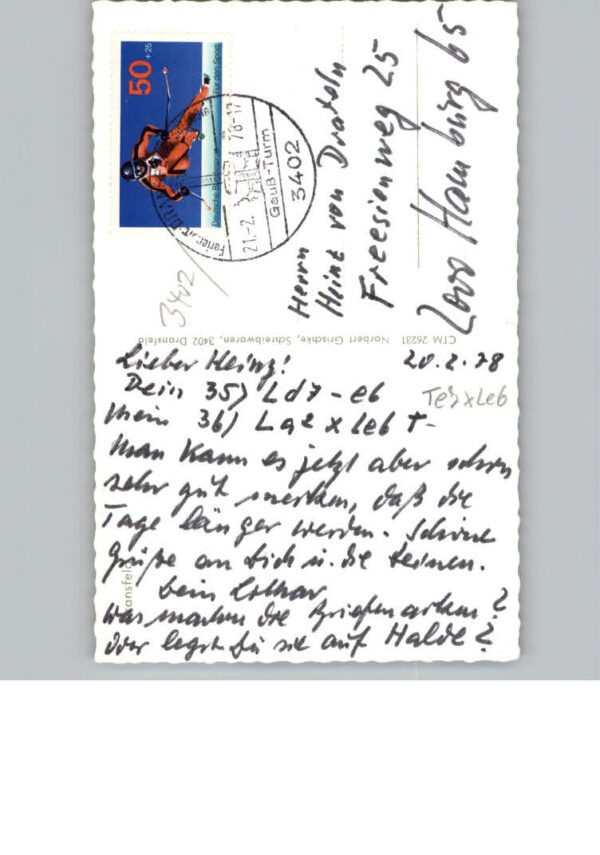 50 +25
Für den Sport
Deutsche Bundespost
21.-2. 78-17
Gauß-Turm
3402
3402
Herrn
Heinz von
Freesienweg 25
2000 Hamburg 65
CTM 26231 Norbert Grischke, Schreibwaren, 3402 Dransfeld
Lieber Heinz! 20.2.78
Dein 35) Ld7-e6
Te3xLe6
Mein 36) La2xLe6 +-
Man kann es jetzt aber schon
sehr gut merken, daß die
Tage länger werden. Schöne
Grüße an Dich u. die Deinen.
Dein Lothar
Was machen die Briefmarken?
Oder legst Du sie auf Halde?
ansfeld